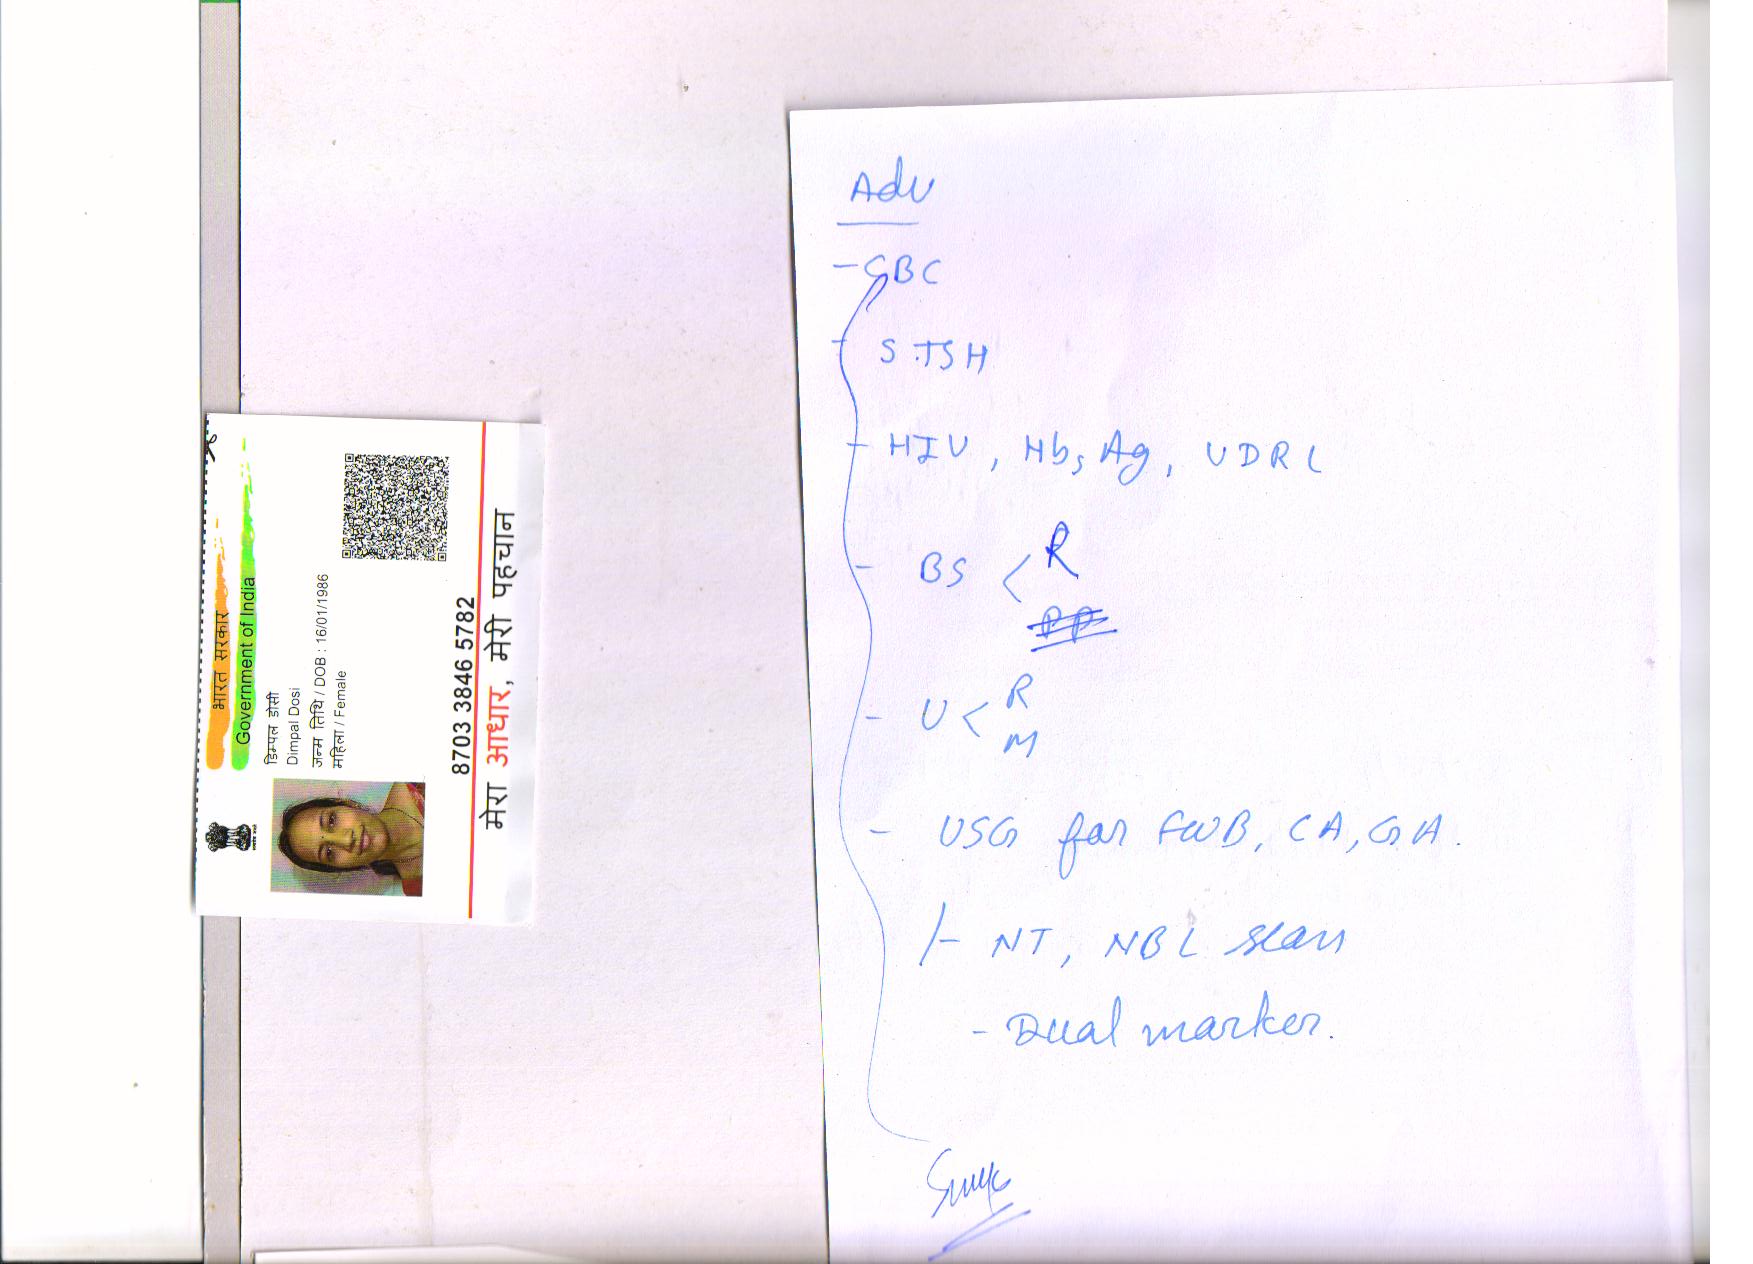 भारत सरकार
Government of India
डिम्पल डोसी
Dimpal Dosi
जन्म तिथि / DOB : 16/01/1986
महिला / Female
8703 3846 5782
मेरा आधार, मेरी पहचान
Adv
- CBC
- S.TSH
- HIV, HbsAg, VDRL
- BS < R
PP
- U < R
M
- USG for FWB, CA, GA.
- NT, NBL scan
- Dual marker.